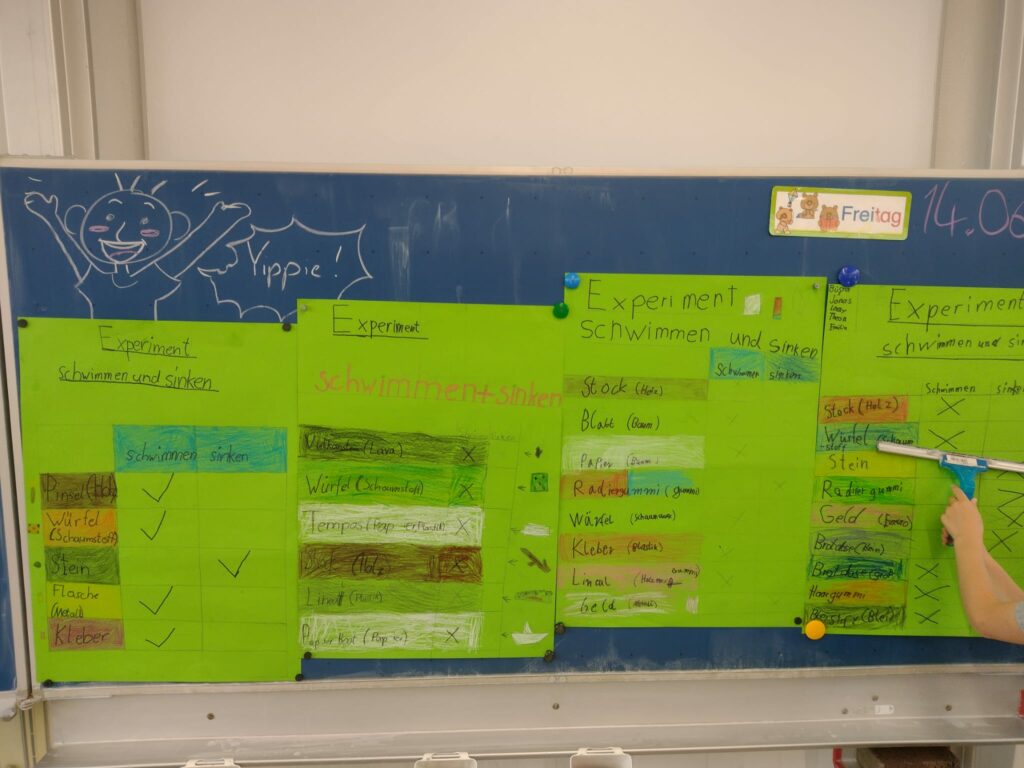 Yippie!
Freitag
14.06
Experiment
schwimmen und sinken
schwimmen sinken
Pinsel (Holz)
Würfel
(Schaumstoff)
Stein
Flasche
(Metall)
Kleber
Experiment
schwimmen + sinken
(Lava)
Würfel (Schaumstoff)
Tempos
Stock (Holz)
Lineal
Papier Boot (Papier)
Experiment
schwimmen und sinken
schwimmen sinken
Stock (Holz)
Blatt (Baum)
Papier (Baum)
Radiergummi (gummi)
Kleber (Plastik)
Lineal
Geld
Jonas
Experiment
schwimmen und sin
schwimmen sinke
Stock (Holz)
Würfel (Schaum
stoff
Stein
Radiergummi
Geld
Brotdose (klein)
Brotdose (groß
Haargummi